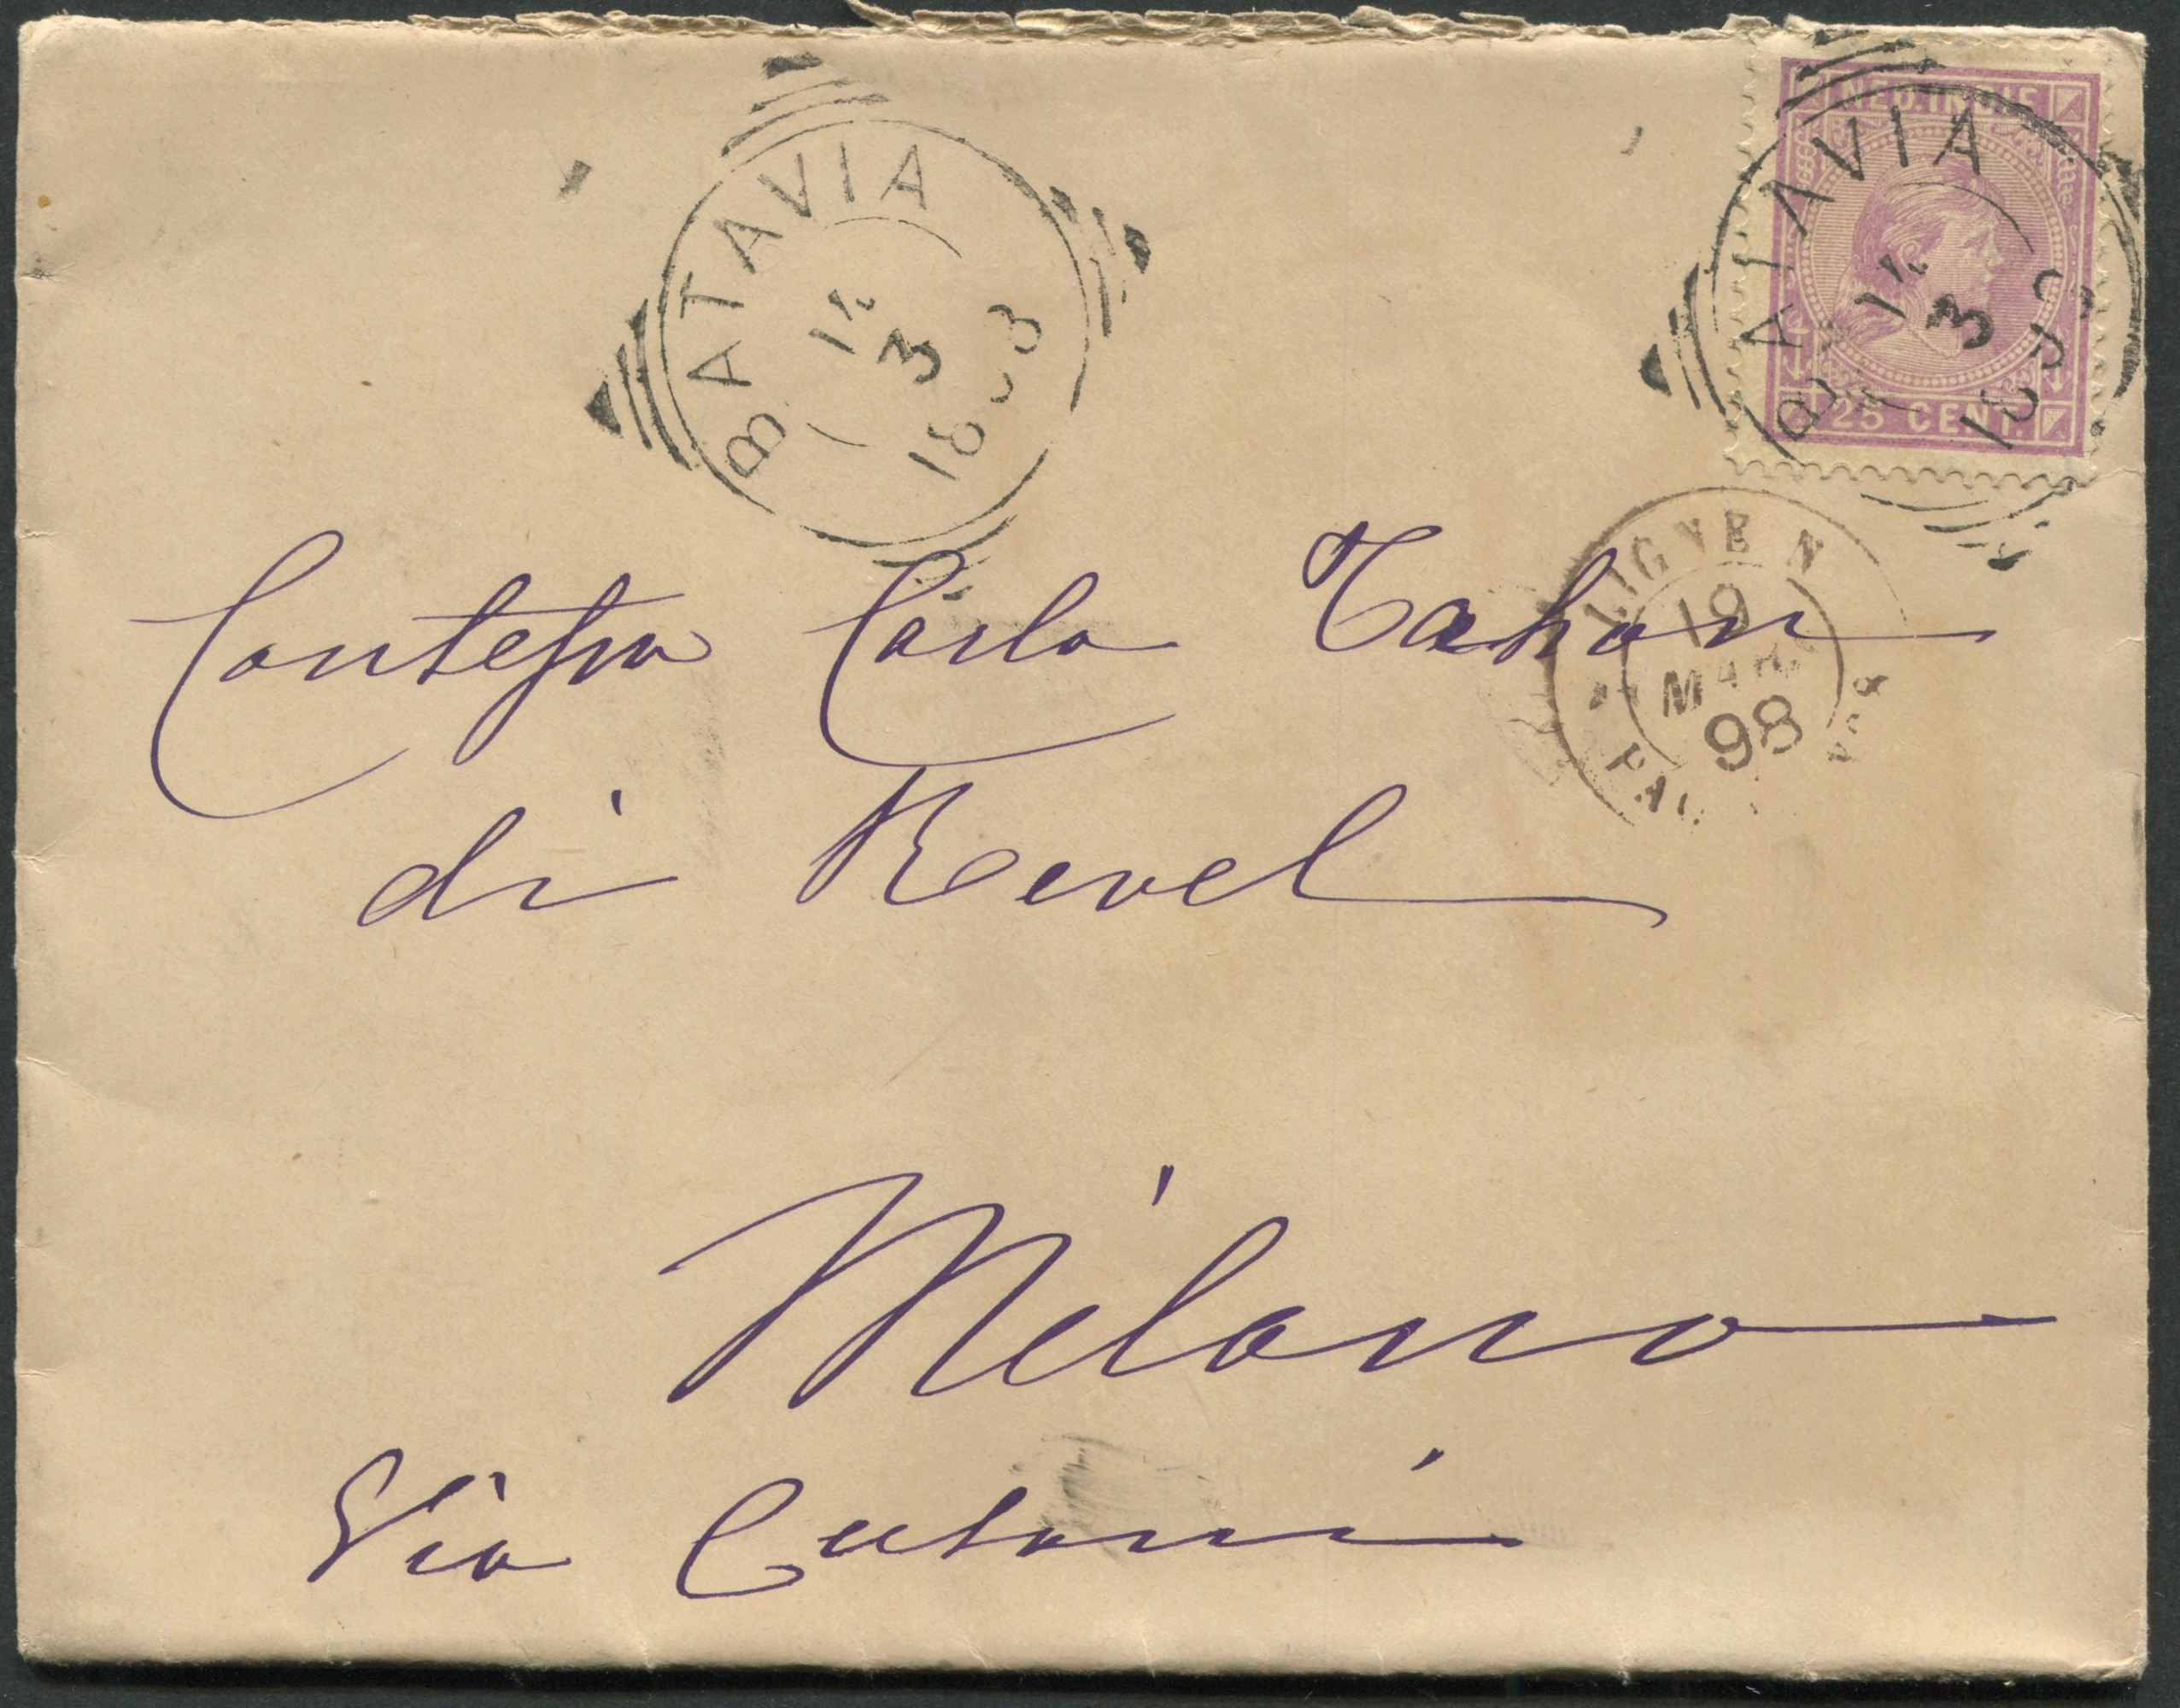 BATAVIA
14
3
NED. INDIE
25 CENT.
BATAVIA
14
3
LIGNE N
19
MARS
98
Contessa Carla Tahon
di Revel
Milano
Via Cusani